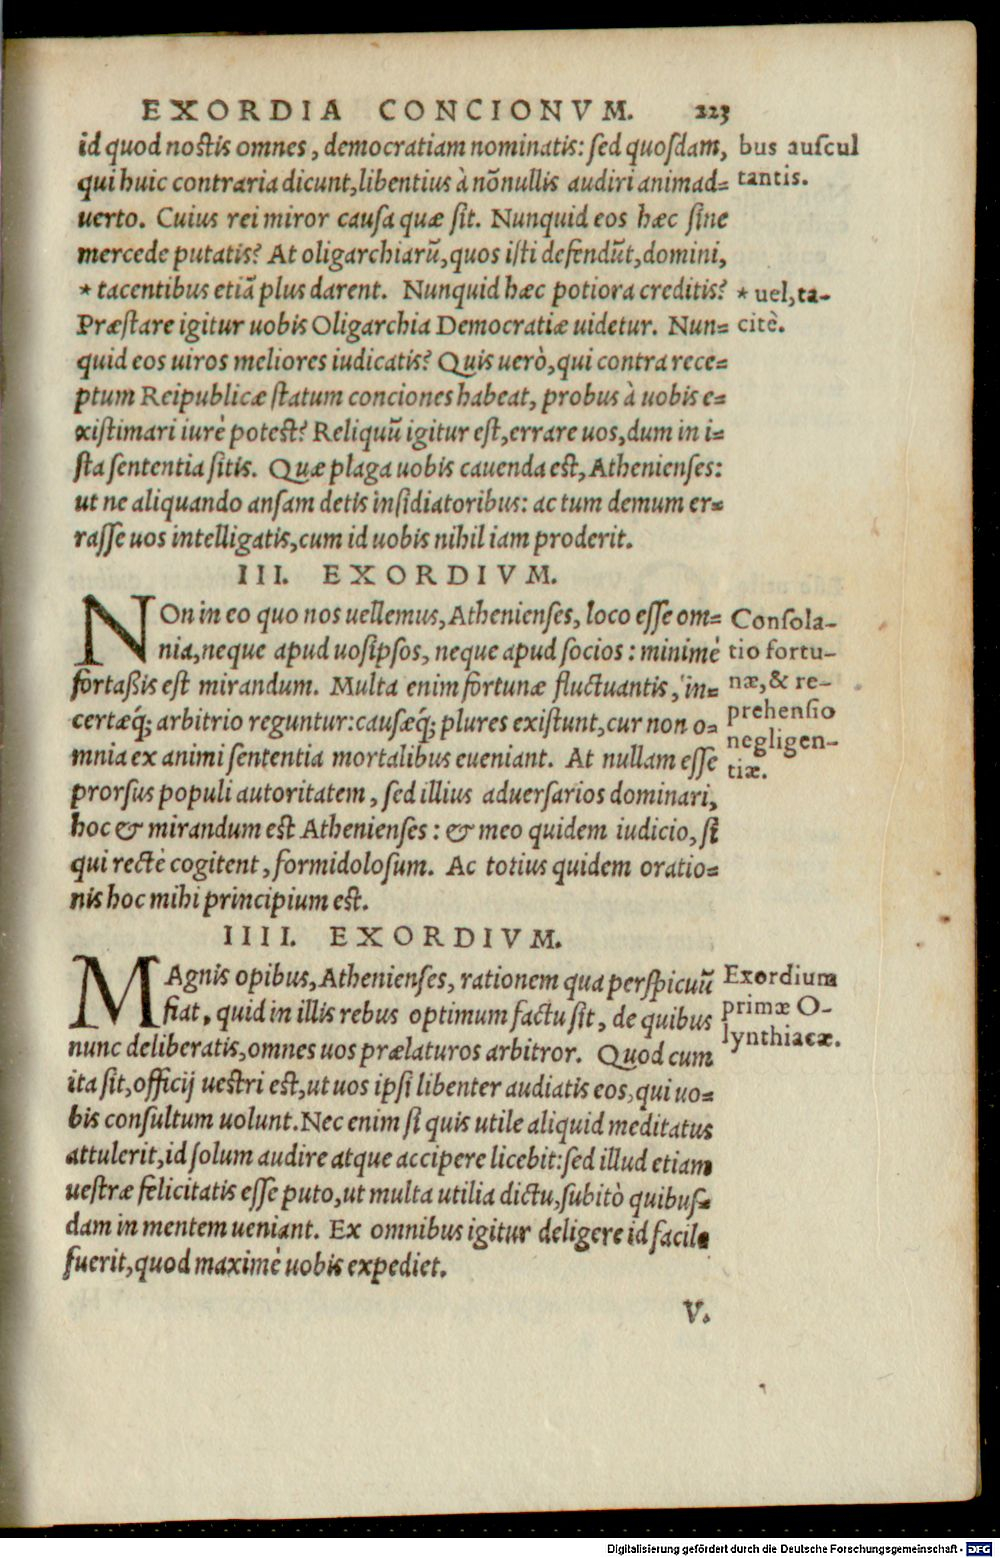 EXORDIA CONCIONVM. 223
id quod nostis omnes, democratiam nominatis: sed quosdam,
qui huic contraria dicunt, libentius à nõnullis audiri animad=
uerto. Cuius rei miror causa quæ sit. Nunquid eos hæc sine
mercede putatis? At oligarchiarũ, quos isti defendũt, domini,
* tacentibus etiã plus darent. Nunquid hæc potiora creditis?
Præstare igitur uobis Oligarchia Democratiæ uidetur. Nun=
quid eos uiros meliores iudicatis? Quis uerò, qui contra rece=
ptum Reipublicæ statum conciones habeat, probus à uobis e=
xistimari iurè potest? Reliquũ igitur est, errare uos, dum in i=
sta sententia sitis. Quæ plaga uobis cauenda est, Athenienses:
ut ne aliquando ansam detis insidiatoribus: ac tum demum er=
rasse uos intelligatis, cum id uobis nihil iam proderit.
bus auscul
tantis.
* uel, ta-
citè.
III. EXORDIVM.
NOn in eo quo nos uellemus, Athenienses, loco esse om=
nia, neque apud uosipsos, neque apud socios: minimè
fortaßis est mirandum. Multa enim fortunæ fluctuantis, in=
certæq́; arbitrio reguntur: causæq́; plures existunt, cur non o=
mnia ex animi sententia mortalibus eueniant. At nullam esse
prorsus populi autoritatem, sed illius aduersarios dominari,
hoc & mirandum est Athenienses: & meo quidem iudicio, si
qui rectè cogitent, formidolosum. Ac totius quidem oratio=
nis hoc mihi principium est.
Consola-
tio fortu-
næ, & re-
prehensio
negligen-
tiæ.
IIII. EXORDIVM.
MAgnis opibus, Athenienses, rationem qua perspicuũ
fiat, quid in illis rebus optimum factu sit, de quibus
nunc deliberatis, omnes uos prælaturos arbitror. Quod cum
ita sit, officij uestri est, ut uos ipsi libenter audiatis eos, qui uo=
bis consultum uolunt. Nec enim si quis utile aliquid meditatus
attulerit, id solum audire atque accipere licebit: sed illud etiam
uestræ felicitatis esse puto, ut multa utilia dictu, subitò quibus=
dam in mentem ueniant. Ex omnibus igitur deligere id facile
fuerit, quod maximè uobis expediet.
Exordium
primæ O-
lynthiacæ.
V.
Digitalisierung gefördert durch die Deutsche Forschungsgemeinschaft - DFG